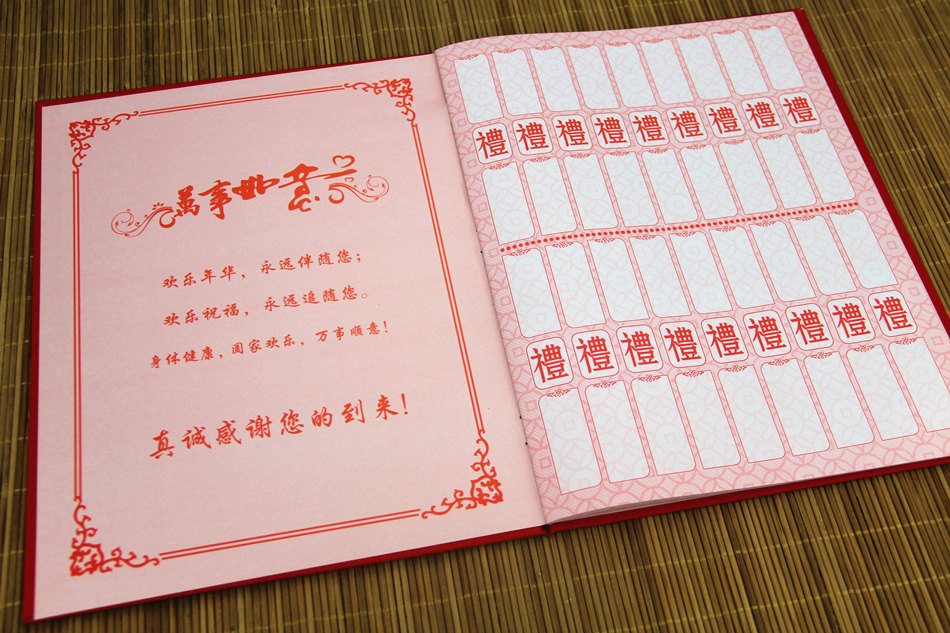 萬事如意
欢乐年华，永远伴随您；
欢乐祝福，永远追随您。
身体健康，阖家欢乐，万事顺意！
真诚感谢您的到来！
禮 禮 禮 禮 禮 禮 禮 禮 禮
禮 禮 禮 禮 禮 禮 禮 禮 禮